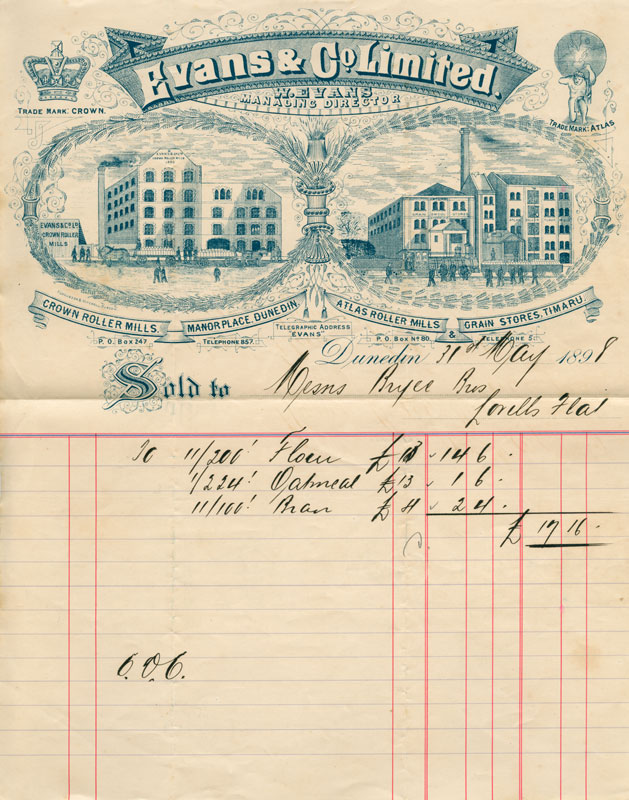 Evans & Co. Limited.
W. EVANS
MANAGING DIRECTOR
TRADE MARK: CROWN.
TRADE MARK: ATLAS
EVANS & CO LD
CROWN ROLLER
MILLS
GRAIN STORES
CROWN ROLLER MILLS. MANOR PLACE, DUNEDIN. ATLAS ROLLER MILLS & GRAIN STORES, TIMARU.
P. O. Box 247 TELEPHONE 857. TELEGRAPHIC ADDRESS "EVANS" P. O. BOX No 80. TELEPHONE 5.
Dunedin 31st May 1898
Sold to Messrs Bryce Bros
Lovells Flat
To 11/200' Flour £13 14 6
1/224' Oatmeal £13 1 6
11/100' Bran £4 2 4
£ 17 16